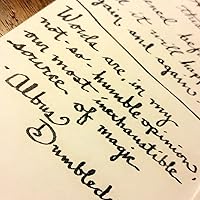 it will
and again.
Words are in my
not-so-humble opinion,
our most inexhaustible
source of magic
-Albus
Dumbled